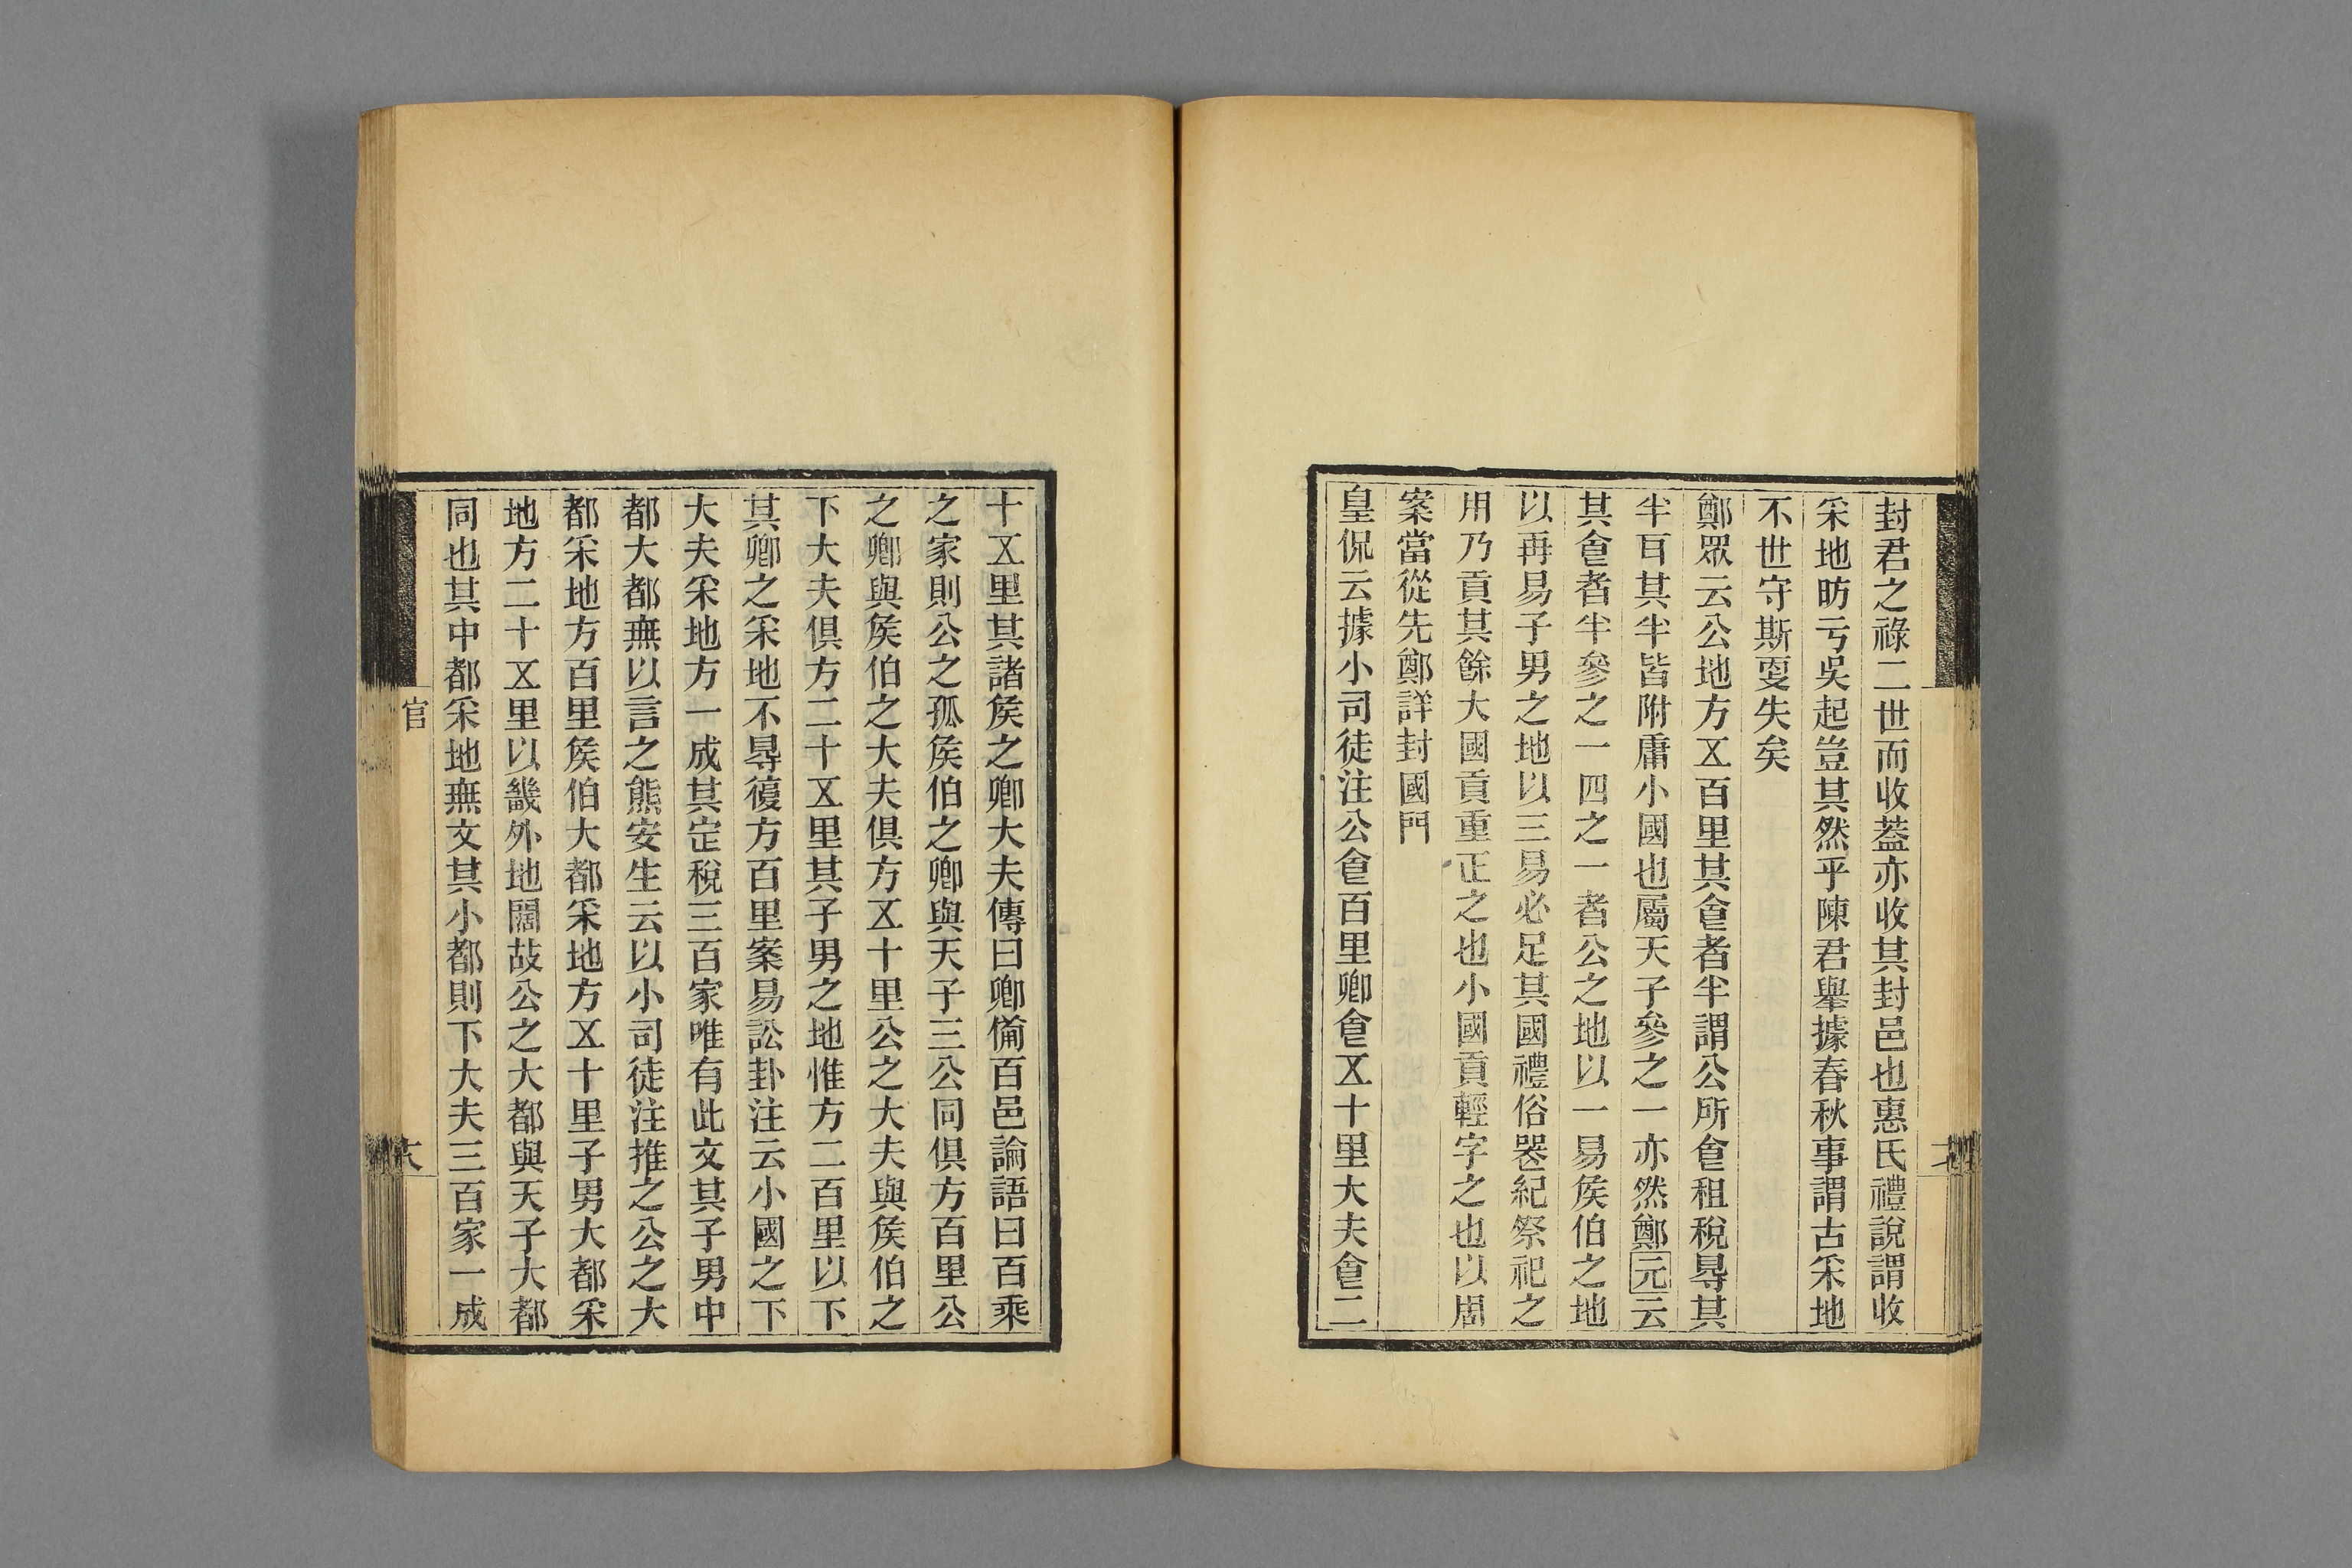 封君之祿二世而收葢亦收其封邑也惠氏禮說謂收
采地昉亏吳起豈其然乎陳君舉據春秋事謂古采地
不世守斯㪅失矣
鄭眾云公地方㐅百里其𠊊者半謂公所𠊊租稅㝵其
半百其半皆附庸小國也屬天子參之一亦然鄭元云
其𠊊者半參之一四之一者公之地以一易矦伯之地
以再易子男之地以三易必足其國禮俗器紀祭祀之
用乃貢其餘大國貢重正之也小國貢輕字之也以周
案當從先鄭詳封國門
皇侃云據小司徒注公𠊊百里卿𠊊㐅十里大夫𠊊二
十㐅里其諸矦之卿大夫傳曰卿備百邑論語曰百乘
之家則公之孤矦伯之卿與天子三公同俱方百里公
之卿與矦伯之大夫俱方㐅十里公之大夫與矦伯之
下大夫俱方二十㐅里其子男之地惟方二百里以下
其卿之采地不㝵復方百里案易訟卦注云小國之下
大夫采地方一成其定稅三百家唯有此文其子男中
都大都無以言之熊安生云以小司徒注推之公之大
都采地方百里矦伯大都采地方㐅十里子男大都采
地方二十㐅里以畿外地闊故公之大都與天子大都
同也其中都采地無文其小都則下大夫三百家一成
官
六